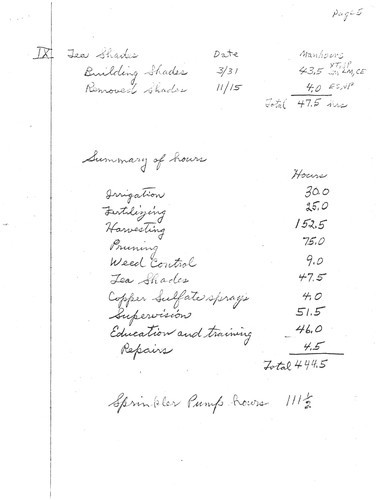 Page 5
IX Tea Shades Date Manhours
Building Shades 3/31 43.5
Removed Shades 11/15 4.0
Total 47.5 hrs
Summary of hours
Hours
Irrigation 30.0
Fertilizing 25.0
Harvesting 152.5
Pruning 75.0
Weed Control 9.0
Tea Shades 47.5
Copper Sulfate sprays 4.0
Supervision 51.5
Education and training 46.0
Repairs 4.5
Total 444.5
Sprinkler Pump hours 111 1/2